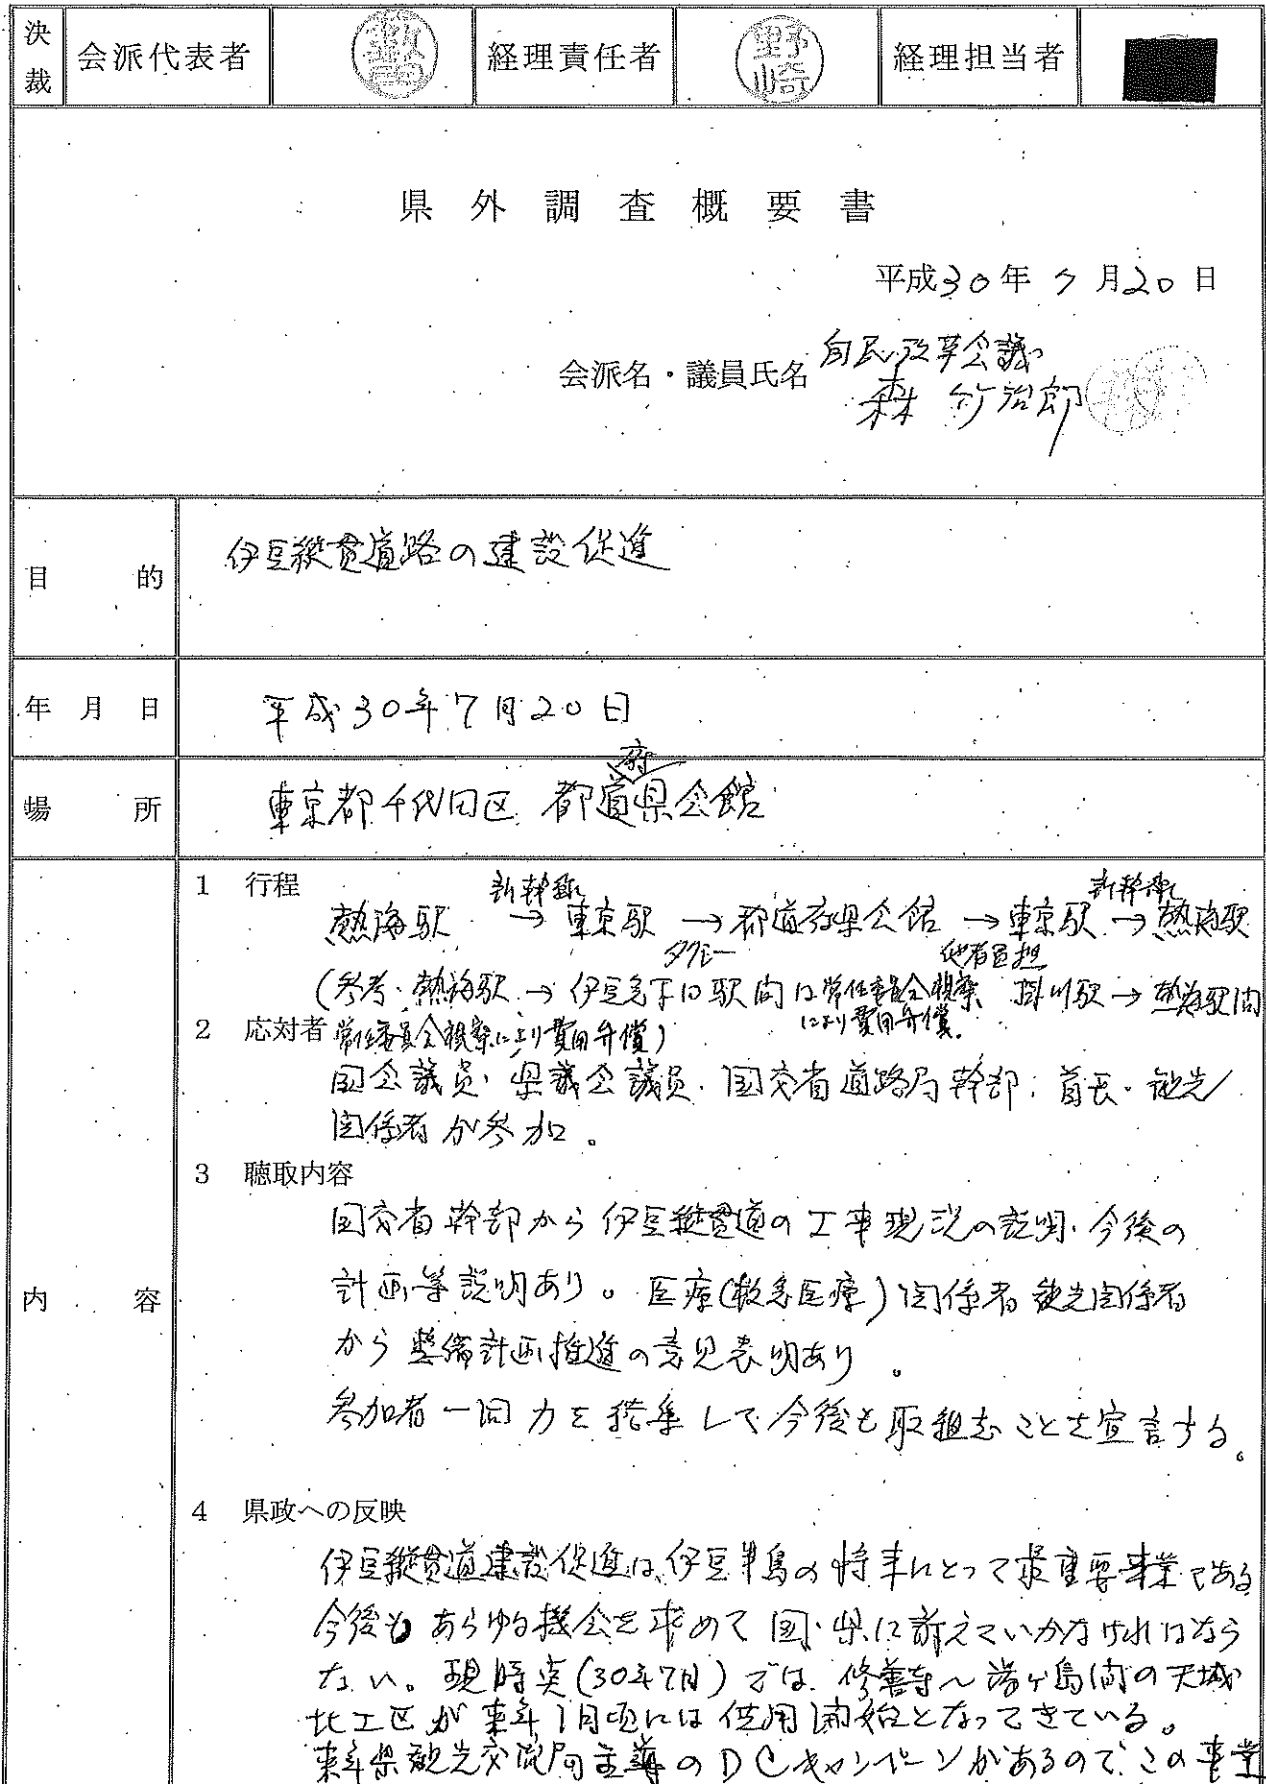 決裁 会派代表者 経理責任者 野崎 経理担当者
県外調査概要書
平成30年7月20日
会派名・議員氏名 自民改革会議
森 竹治郎
目的 伊豆縦貫道路の建設促進
年月日 平成30年7月20日
場所 東京都千代田区 都道府県会館
内容
1 行程
熱海駅 新幹線→ 東京駅 →タクシー 都道府県会館 → 東京駅 新幹線→ 熱海駅
(参考・熱海駅 → 伊豆急下田駅間は常任委員会視察により費用弁償 他者負担 掛川駅 → 熱海駅間
2 応対者 常任委員会視察により費用弁償)
国会議員・県議会議員・国交省道路局幹部・首長・観光
関係者が参加。
3 聴取内容
国交省幹部から伊豆縦貫道の工事現況の説明・今後の
計画等説明あり。医療(救急医療)関係者 観光関係者
から整備計画推進の意見表明あり。
参加者一同力を結集して今後も取組むことを宣言する。
4 県政への反映
伊豆縦貫道建設促進は、伊豆半島の将来にとって最重要事業である
今後もあらゆる機会を求めて国・県に訴えていかなければなら
ない。現時点(30年7月)では、修善寺〜湯ヶ島間の天城
北工区が来年1月頃には供用開始となってきている。
来年県観光交流局主導のDCキャンペーンがあるので、この事業